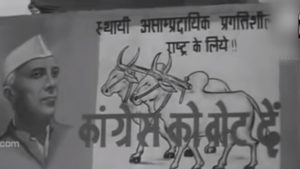 स्थायी असाम्प्रदायिक प्रगतिशील
राष्ट्र के लिये!!
कांग्रेस को वोट दें
com